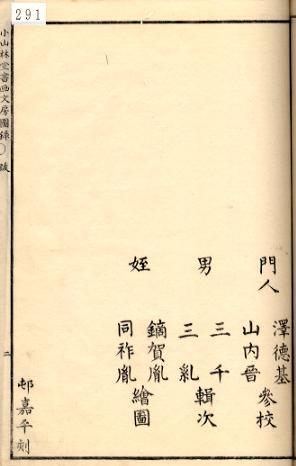 291
門人
澤德基
山内晋
參校
男
三千
三糺
輯次
姪
鏑賀胤
同祚胤
繪圖
邨嘉平刻
小山林堂書画文房圖録 〇 跋
二